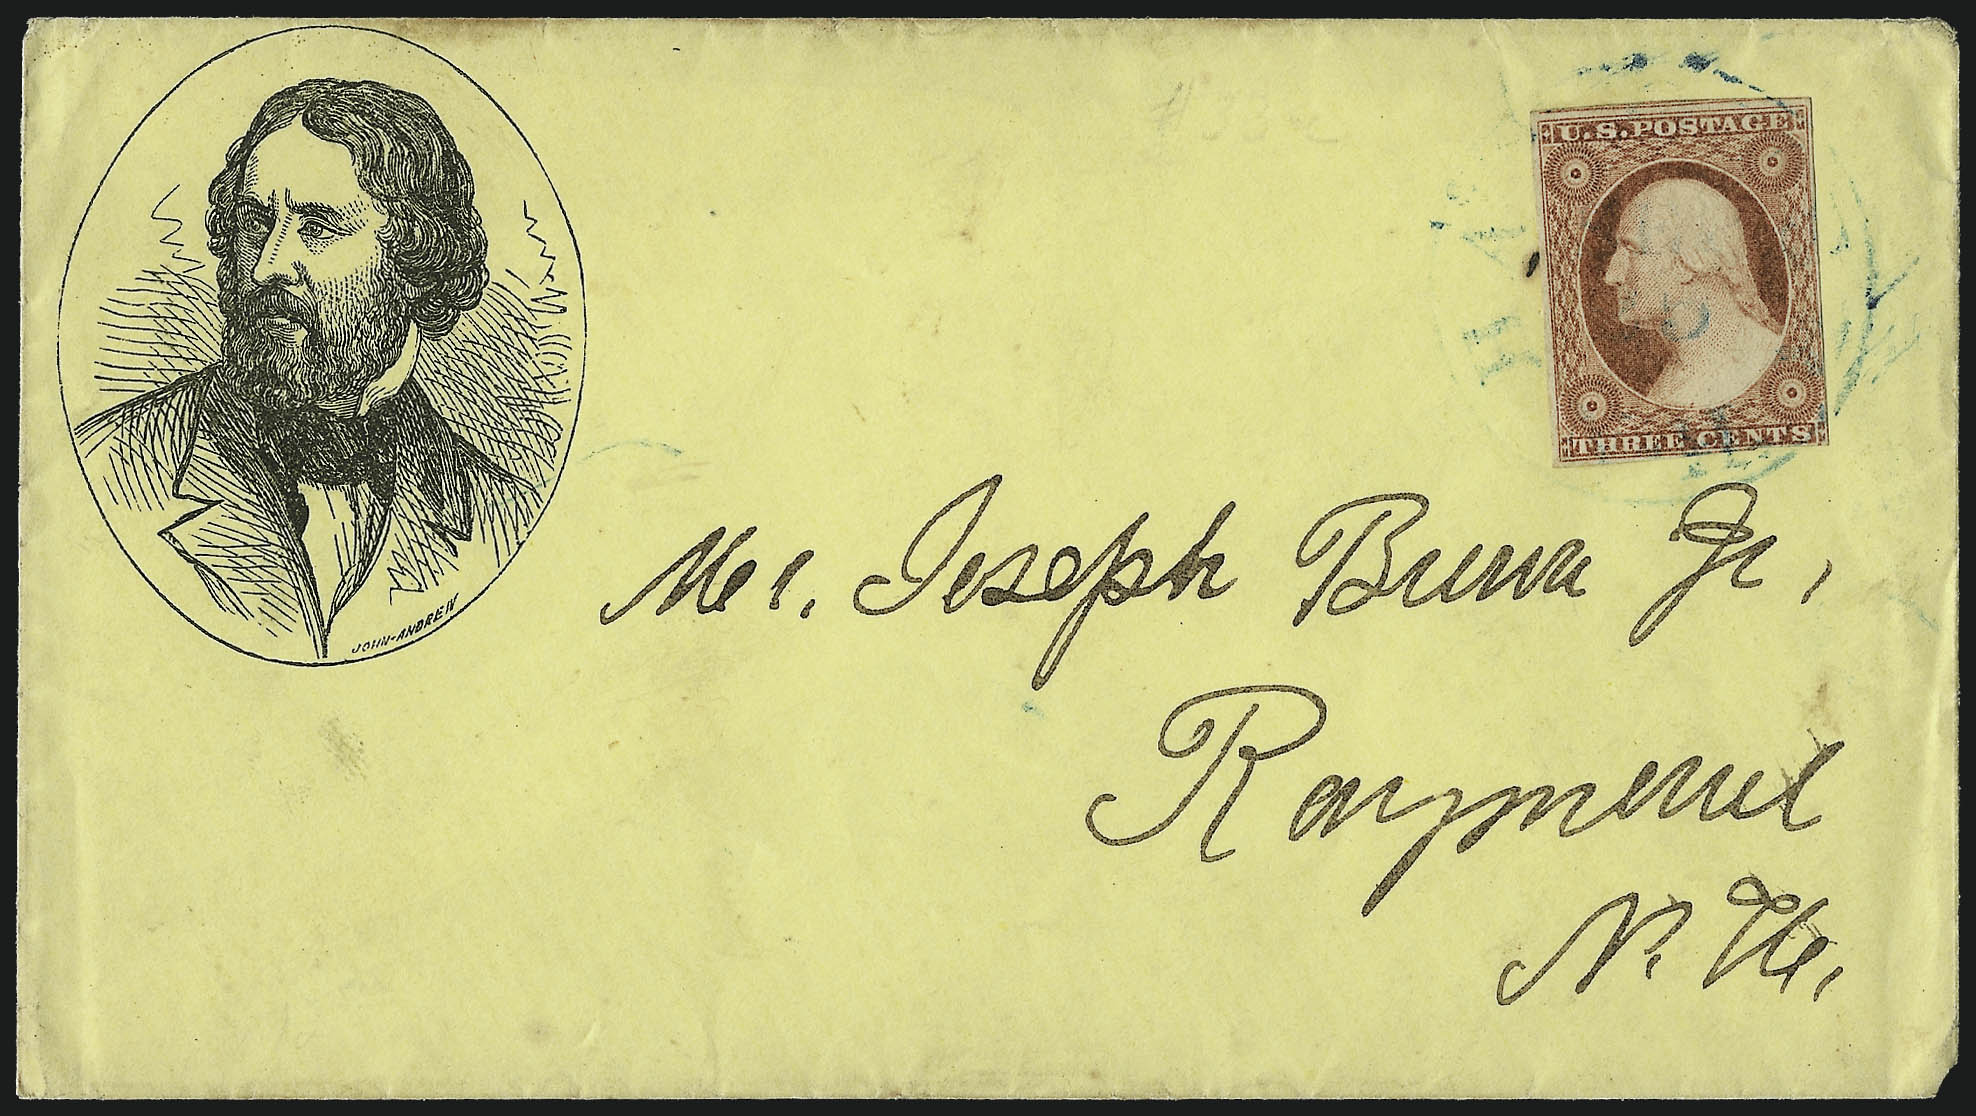 U.S. POSTAGE
THREE CENTS
JOHN-ANDREW
Mr. Joseph Jr,
Raymond
N. H.